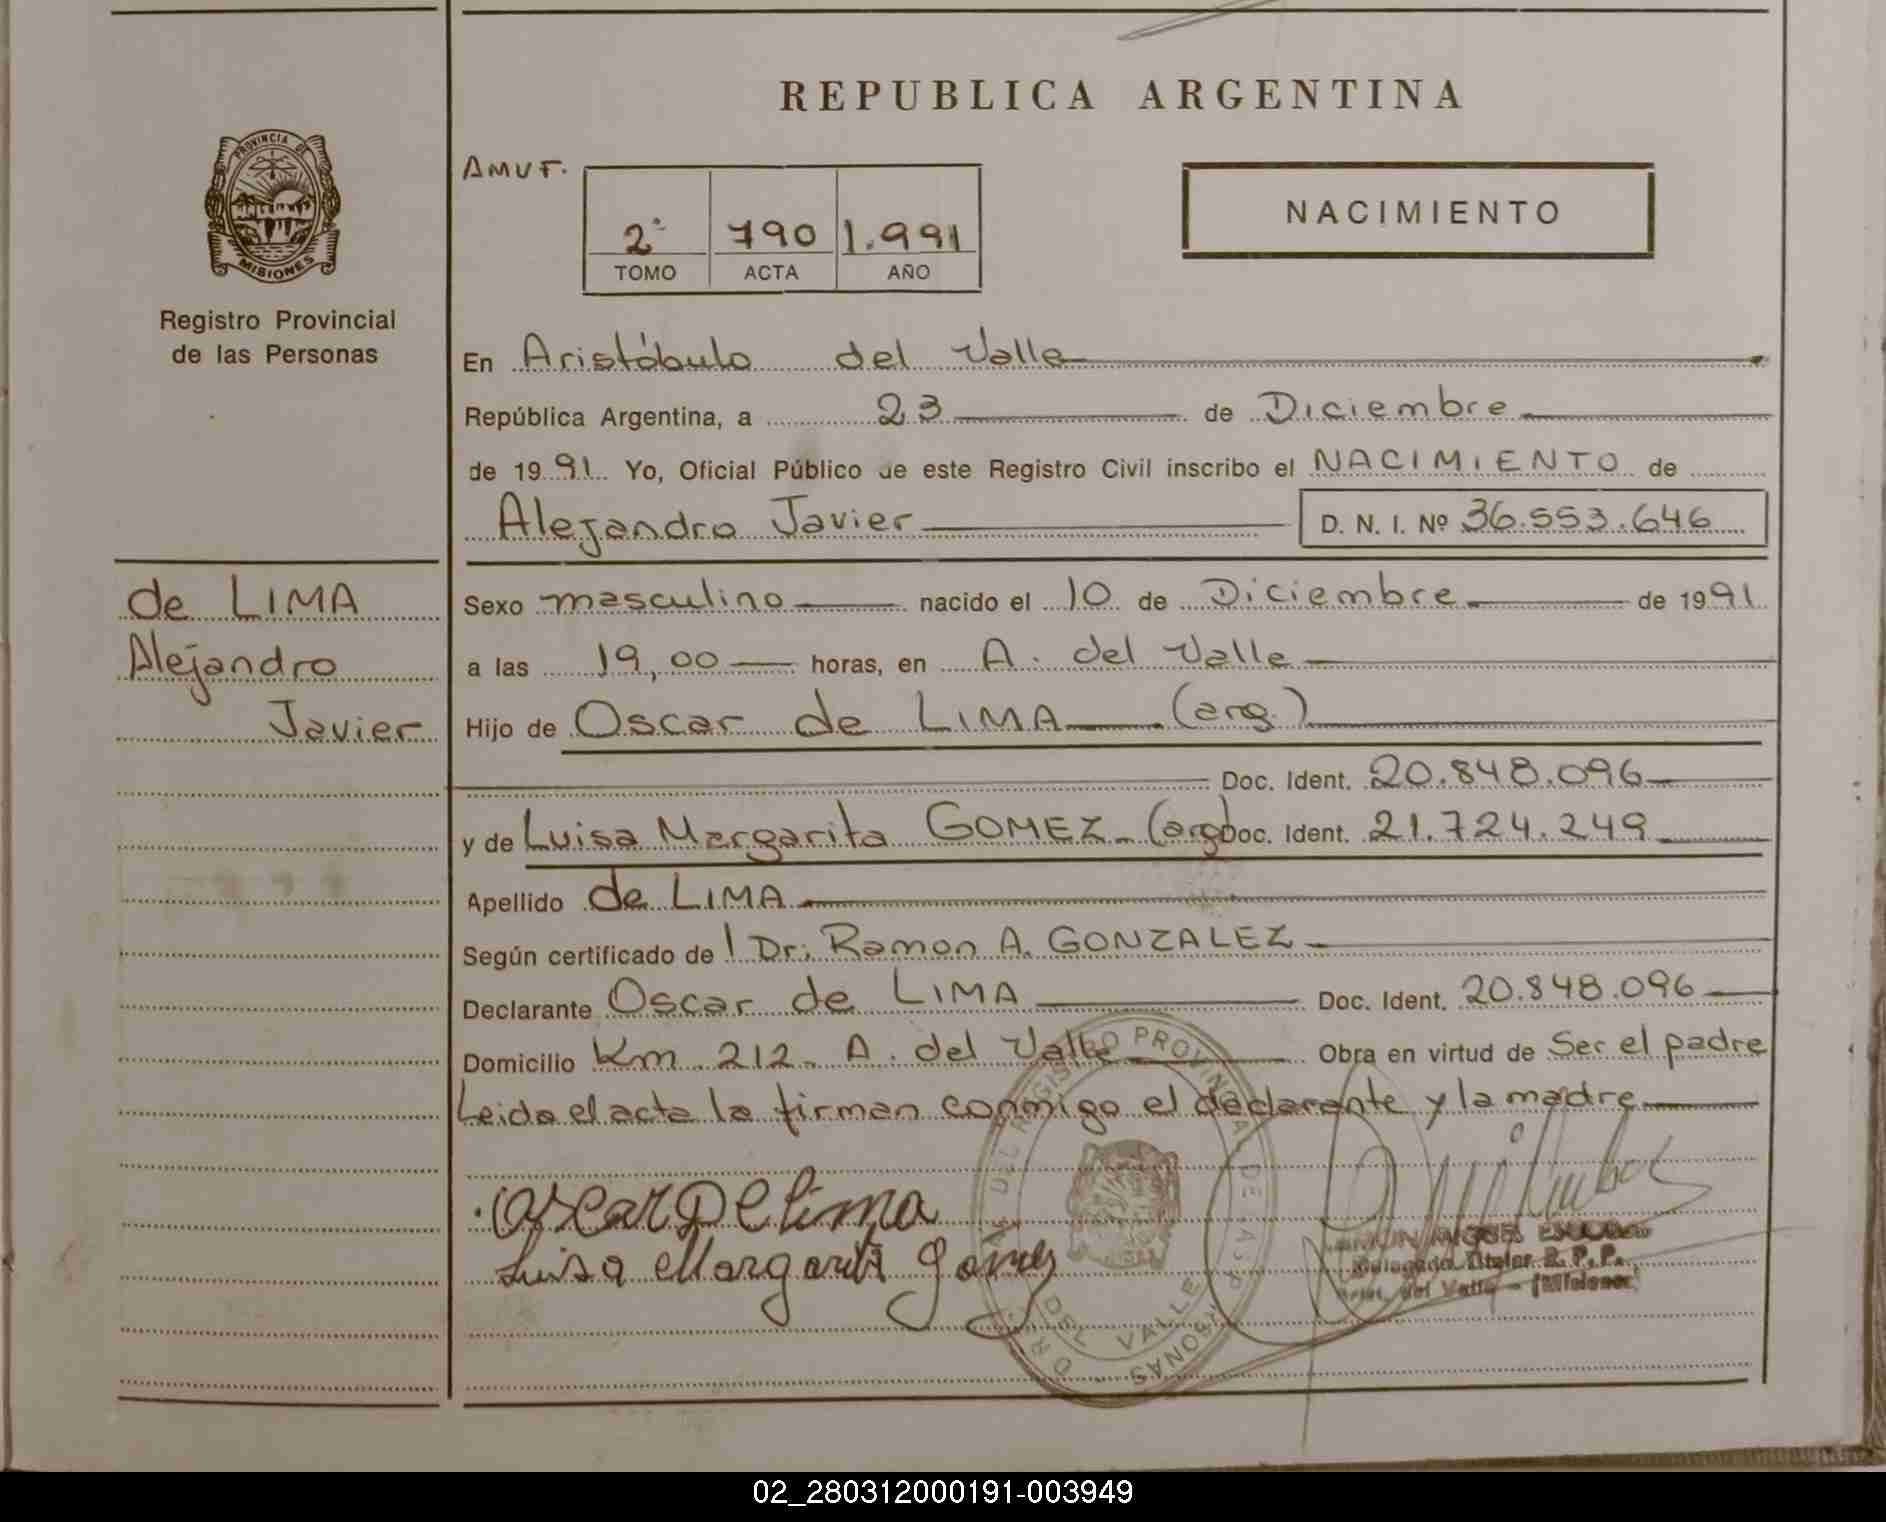 REPUBLICA ARGENTINA
PROVINCIA DE
MISIONES
Registro Provincial
de las Personas
AMUF.
2º 790 1.991
TOMO ACTA AÑO
NACIMIENTO
En Aristóbulo del Valle
República Argentina, a 23 de Diciembre
de 1991 Yo, Oficial Público de este Registro Civil inscribo el NACIMIENTO de
Alejandro Javier D. N. I. Nº 36.553.646
de LIMA
Alejandro
Javier
Sexo masculino nacido el 10 de Diciembre de 1991
a las 19,00 horas, en A. del Valle
Hijo de Oscar de LIMA (arg.)
Doc. Ident. 20.848.096
y de Luisa Margarita GOMEZ (arg) Doc. Ident. 21.724.249
Apellido de LIMA
Según certificado de l Dr. Ramon A. GONZALEZ
Declarante Oscar de LIMA Doc. Ident. 20.848.096
Domicilio Km 212 A. del Valle Obra en virtud de Ser el padre
Leida el acta la firman conmigo el declarante y la madre
oscar De lima
Luisa Margarita gomez
DEL REGISTRO PROVINCIAL DE LAS PERSONAS
DEL VALLE
Delegado Titular R. P. P.
del Valle - (Misiones)
02_280312000191-003949